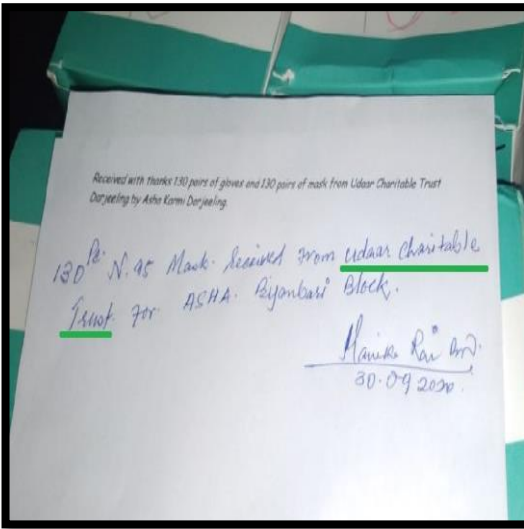 Received with thanks 130 pairs of gloves and 130 pairs of mask from Udaar Charitable Trust
Darjeeling by Asha Karmi Darjeeling.
130 Pc. N.95 Mask. Received From Udaar Charitable
Trust. For ASHA. Bijanbari Block.
Rai
30.09.2020.